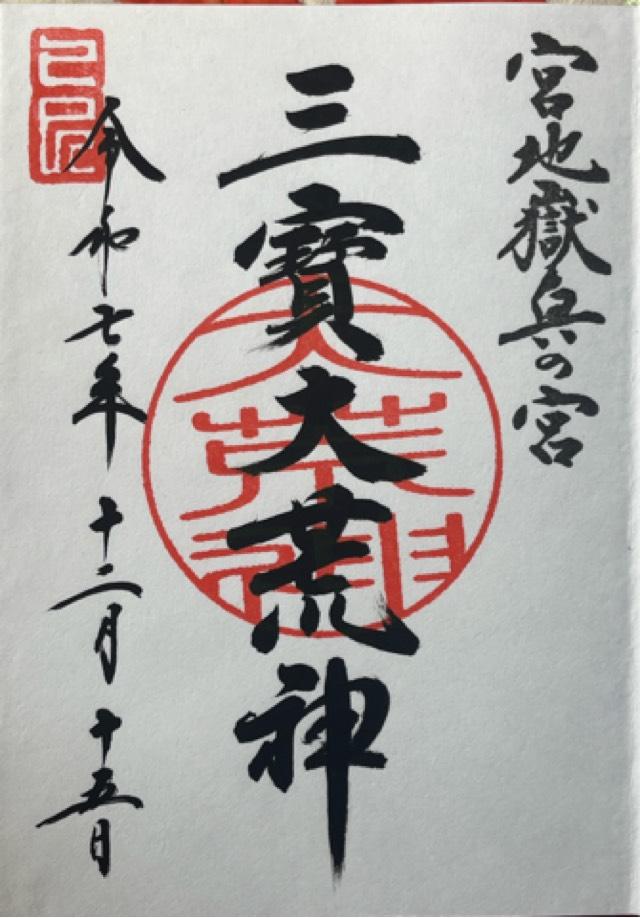 宮地嶽奥の宮
三寶大荒神
令和七年 十二月 十五日
大荒神